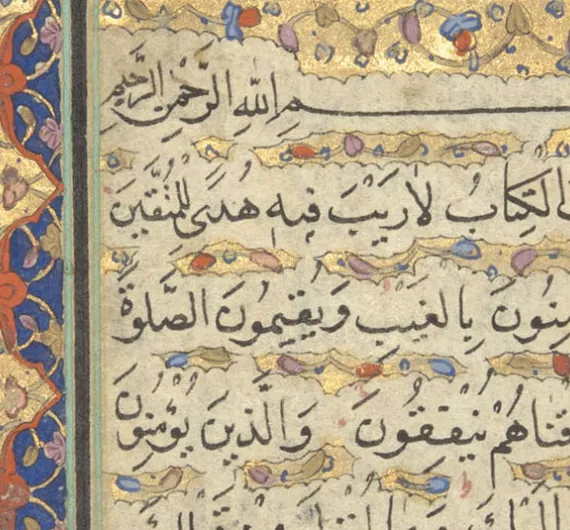 ـم اللّٰهِ الرَّحْمٰنِ الرَّحِيمِ
الْكِتَابُ لَا رَيْبَ فِيهِ هُدًى لِلْمُتَّقِينَ
ـمِنُونَ بِالْغَيْبِ وَيُقِيمُونَ الصَّلٰوةَ
ـقْنَاهُمْ يُنْفِقُونَ وَالَّذِينَ يُؤْمِنُونَ